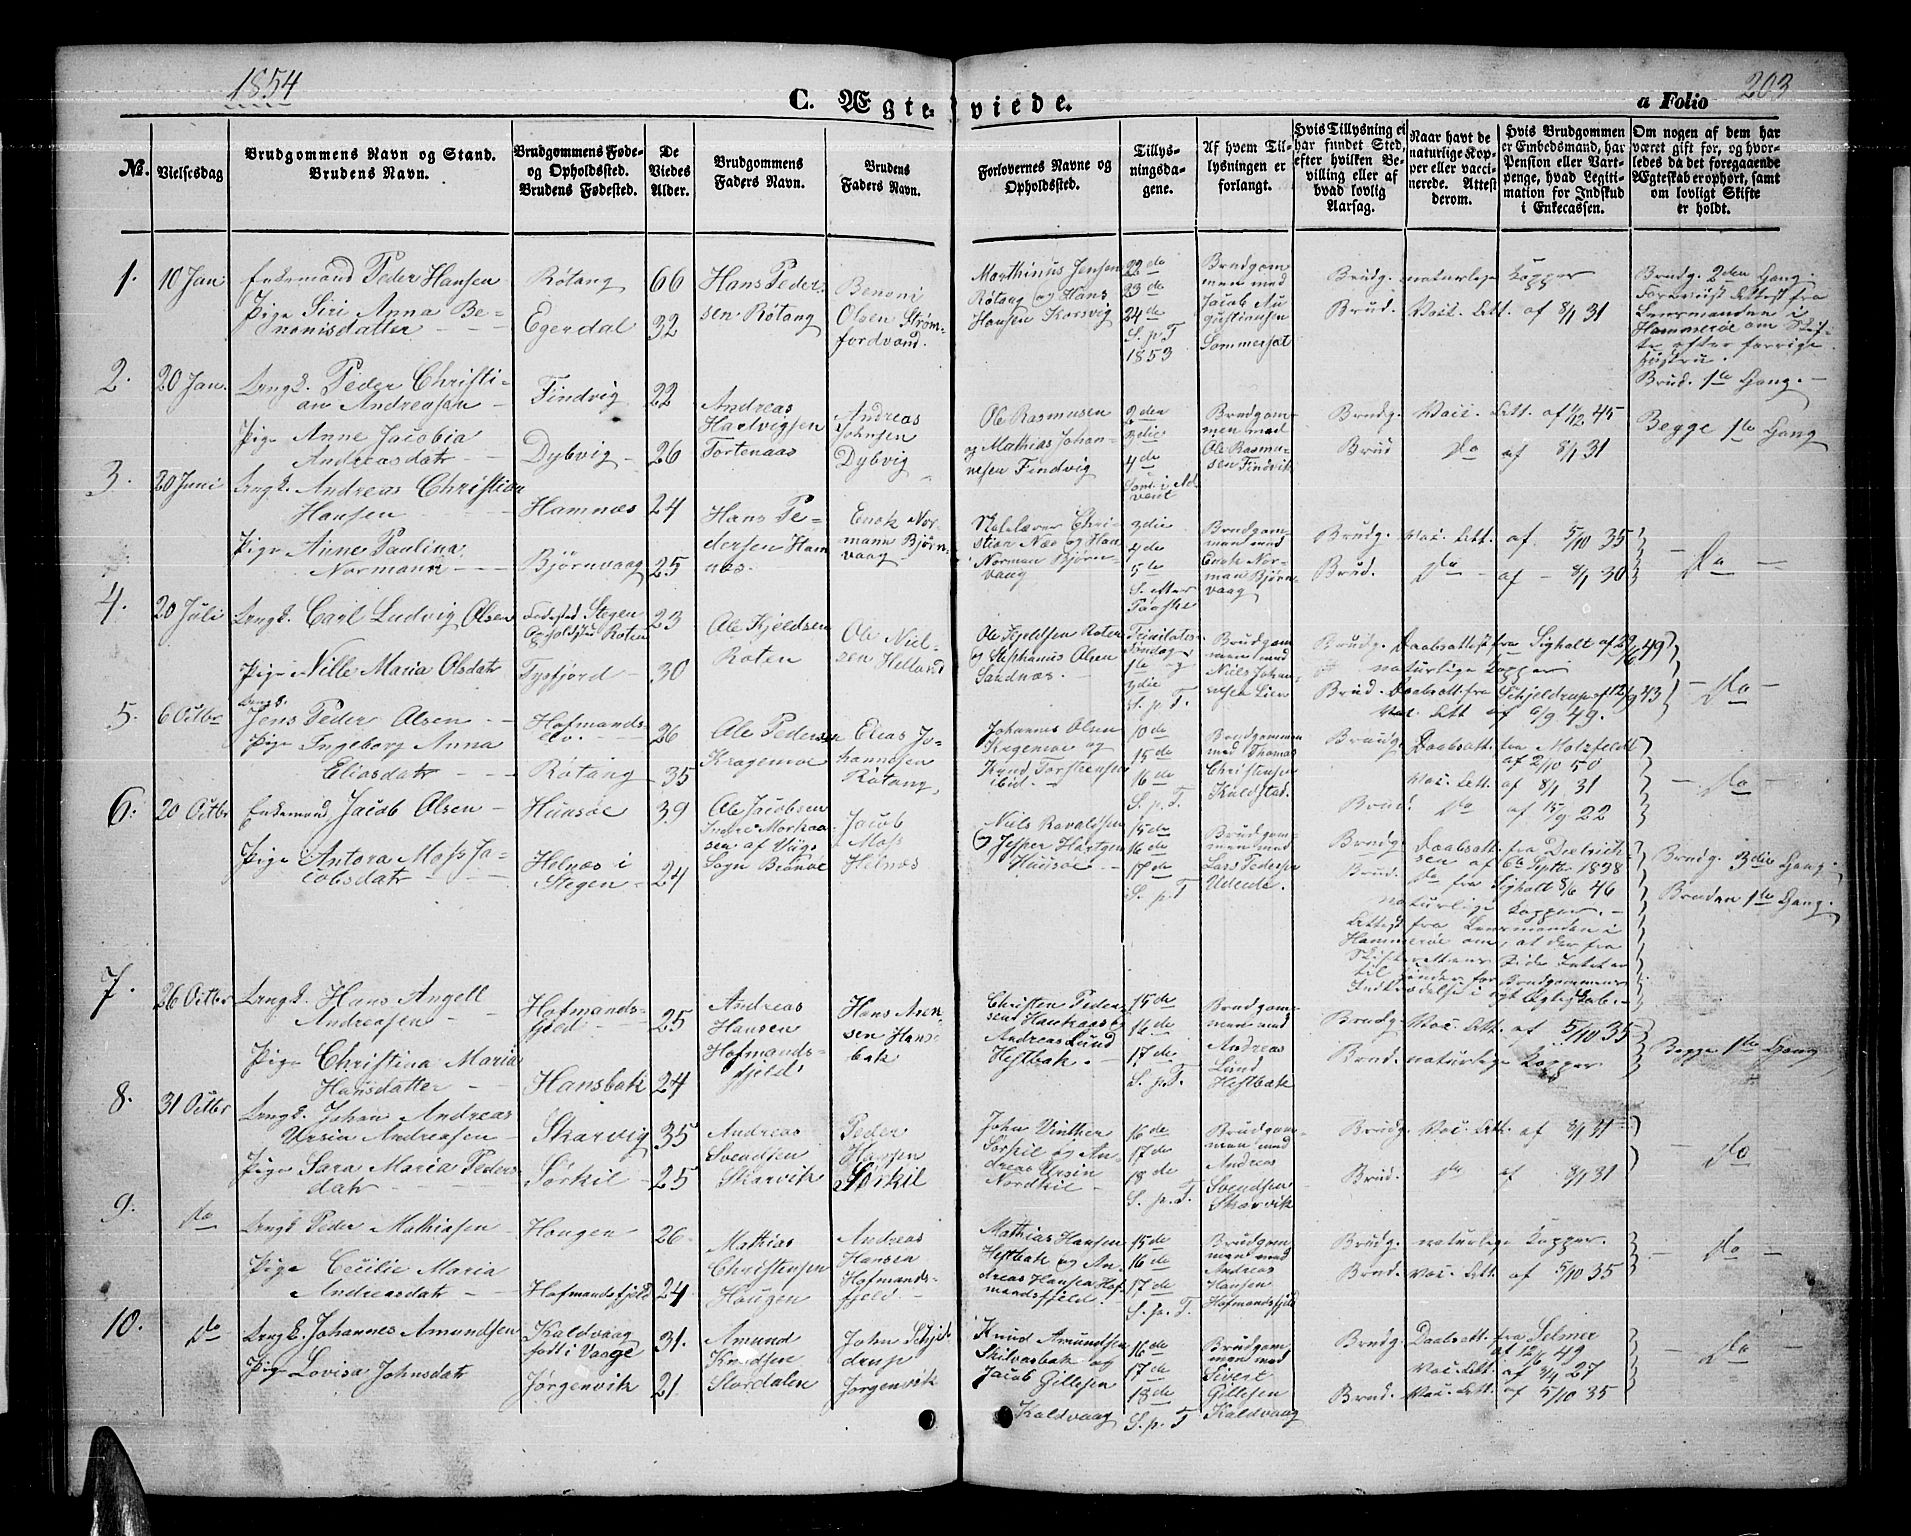 1854
203
C. Ægteviede.
a Folio
No.
Vielsesdag
Brudgommens Navn og Stand.
Brudens Navn.
Brudgommens Føde-
og Opholdssted.
Brudens Fødested.
De
Viedes
Alder.
Brudgommens
Faders Navn.
Brudens
Faders Navn.
Forlovernes Navne og
Opholdssted.
Tillys-
ningsda-
gene.
Af hvem Til-
lysningen er
forlangt.
Hvis Tillysning ei
har fundet Sted,
efter hvilken Be-
villing eller af
hvad lovlig
Aarsag.
Naar havt de
naturlige Kop-
per eller vacci-
nerede. Attest
derom.
Hvis Brudgommen
er Embedsmand, har
Pension eller Vart-
penge, hvad Legiti-
mation for Indskud
i Enkecassen.
Om nogen af dem har
været gift før, og hvor-
ledes da det foregaaende
Ægteskab er ophørt, samt
om lovligt Skifte
er holdt.
1.
10 Jan
Enkemand Peder Hansen
Pige Siri Anna Be-
nonisdatter
Røtang
Egerdal
66
32
Hans Peder-
sen Røtang
Benoni
Olsen Strøm-
fordvand.
Marthinus Jensen
Røtang og Hans
Hansen Korsvig
22de
23de
24de
S. p. T
1853
Brudgom
men med
Jacob Au-
gustinusen
Sommerset
Brudg. naturlige Kopper
Brud. Vac. Att. af 8/1 31
Brudg. 2den Gang.
Forevist Attest fra
Lensmanden i
Hammerøe om Skif-
te efter forrige
Hustru.
Brud. 1te Gang.
2.
20 Jan.
Ungk. Peder Christi-
an Andreasen
Pige Anne Jacobia
Andreasdatr
Findvig
Dybvig
22
26
Andreas
Hartvigsen
Tortenaas
Andreas
Johnsen
Dybvig
Ole Rasmusen
og Mathias Johan-
nesen Findvig
2den
3die
4de
Sønd. i Ad-
vent
Brudgom-
men med
Ole Rasmu-
sen Findvik
Brudg. Vac. Att. af 1/12 45
Brud Do af 8/1 31
Begge 1te Gang
3.
20 Juni
Ungk. Andreas Christian
Hansen
Pige Anne Paulina
Normann
Hamnæs
Bjørnvaag
24
25
Hans Pe-
dersen Ham
næs.
Enok Nor-
mann Bjørn-
vaag
Skolelærer Chri-
stian Næs og Han
Norman Bjørn-
vaag
3die
4de
5te
S. efter
Paaske
Brudgom-
men med
Enok Nor-
man Bjørn
vaag
Brudg. Vac. Att. af 5/10 35
Brud. Do af 8/1 30
Do
4.
20 Juli
Ungk. Carl Ludvig Olsen
Pige Nille Maria Olsdatr
Fødested Stegen
Opholdsted Roten
Tysfjord
23
30
Ole Kjeldsen
Roten
Ole Niel-
sen Helland
Ole Kjeldsen Roten
og Stephanus Olsen
Sandnæs
Trinitatis
Søndag
1te og
3die
S. p. T.
Brudgom-
men med
Niels Johan-
nesen Lien
Brudg. Daabsattest fra Sighalt af 29/6 49
naturlige Kopper
Brud. Daabsatt. fra Schjeldrup af 12/9 43
Vac. Att af 6/9 49.
Do
5.
6 Octbr
Ungk.
Jens Peder Olsen
Pige Ingeborg Anna
Eliasdatr
Hofmands-
elv.
Røtang
26
35
Ole Pedersen
Kragemoe
Elias Jo-
hannesen
Røtang
Johannes Olsen
Kragemoe og
Knud Torstensen
ibid.
10de
15de
16de
S. p. T.
Brudgommen
med Thomas
Christensen
Kuldstad.
Brudg. Daabsatt. fra Motzfeldt
af 2/10 50
Vac. Att. af 8/1 31
Brud. Do af 15/9 22
Do
6.
20 Octbr
Enkemand Jacob Olsen
Pige Antora Moss Ja-
cobsdatr
Hunsøe
Helnæs i
Stegen
39
24
Ole Jacobsen
Indre Morkaa-
sen af Viigs
Sogn Brønøe
Jacob
Moss
Helnæs
Niels Ravaldsen
og Jesper Hartgen
Hunsøe
15de
16de
17de
S. p. T
Brudgom-
men med
Lars Pedersen
Brudg. Daabsatt. fra Dietrich-
sen af 6te Septbr 1838
Brud. Do fra Sighalt 8/6 46
naturlige Kopper.
Attest fra Lensmanden i
Hammerøe om, at der fra
Skifterettens Side Intet er
til Hinder for Brudgommens
Indtrædelse i nyt Ægteskab.
Brudg. 3die Gang
Bruden 1te Gang.
7.
26 Octbr
Ungk. Hans Angell
Andreasen
Pige Christina Maria
Hansdatter
Hofmands-
fjeld
Hansbak
25
24
Andreas
Hansen
Hofmands-
fjeld
Hans Aren-
sen Hans-
bak
Christen Peder-
sen Haukaas og
Andreas Lund
Hestbak.
15de
16de
17de
S. p. T.
Brudgom-
men med
Andreas
Lund
Hestbak
Brudg. Vac. Att. af 5/10 35
Brud. naturlige Kopper
Begge 1te Gang
8.
31 Octbr
Ungk. Johan Andreas
Ursin Andreasen
Pige Sara Maria Peders
datr
Skarvig
Sørkil
35
25
Andreas
Svendsen
Skarvik
Peder
Hansen
Sørkil
John Vinther
Sørkil og An-
dreas Ursin
Nordkil
16de
17de
18de
S. p. T.
Brudgom-
men med
Andreas
Svendsen
Skarvik
Brudg. Vac. Att. af 8/1 31
Brud. Do af 8/1 31
Do
9.
Do
Ungk. Peder Mathiasen
Pige Cecilie Maria
Andreasdatr
Hougen
Hofmandsfjeld
26
24
Mathias
Christensen
Hougen
Andreas
Hansen
Hofmands-
fjeld
Mathias Hansen
Hestbak og An-
dreas Hansen Hof-
mandsfjeld.
15de
16de
17de
S. p. T.
Brudgom
men med
Andreas
Hansen
Hofmandsfjeld
Brudg. naturlige Kopper
Brud. Vac. Att. af 5/10 35
Do
10.
Do
Ungk. Johannes Amundsen
Pige Lovisa Johnsdatr
Kaldvaag
født i Vaage
Jørgenvik
31.
21.
Amund
Knudsen
Stordalen
John Schjel-
drup
Jørgenvik
Knud Amundsen
Skilvasbak og
Jacob Gillesen
Kaldvaag
16de
17de
18de
S. p. T
Brudgom
men med
Sivert
Gillesen
Kaldvaag
Brudg. Daabsatt. fra Selmer
af 12/6 49
Vac. Att. af 3/4 27
Brud. Vac. Att. af 5/10 35
Do